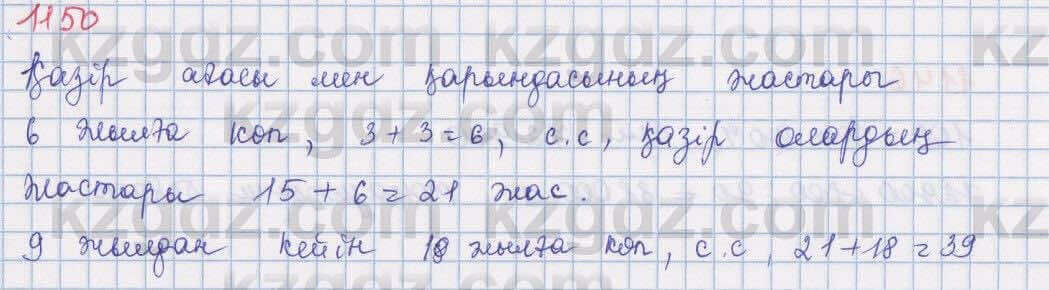 1150
Қазір ағасы мен қарындасының жастары
6 жылға көп, 3 + 3 = 6, с.с, қазір олардың
жастары 15 + 6 = 21 жас.
9 жылдан кейін 18 жылға көп, с.с, 21 + 18 = 39
kzgdz.com